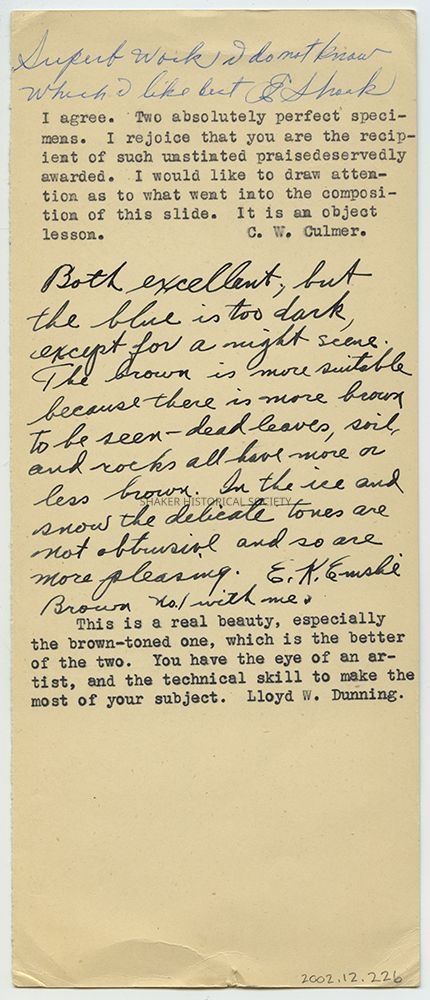 Superb work I do not know
which I like best E Shook
I agree. Two absolutely perfect speci-
mens. I rejoice that you are the recip-
ient of such unstinted praisedeservedly
awarded. I would like to draw atten-
tion as to what went into the composi-
tion of this slide. It is an object
lesson. C. W. Culmer.
Both excellent, but
the blue is too dark,
except for a night scene.
The brown is more suitable
because there is more brown
to be seen - dead leaves, soil,
and rocks all have more or
less brown. In the ice and
SHAKER HISTORICAL SOCIETY
snow the delicate tones are
not obtrusive and so are
more pleasing. E. K. Emslie
Brown no. 1 with me.
This is a real beauty, especially
the brown-toned one, which is the better
of the two. You have the eye of an ar-
tist, and the technical skill to make the
most of your subject. Lloyd W. Dunning.
2002.12.226